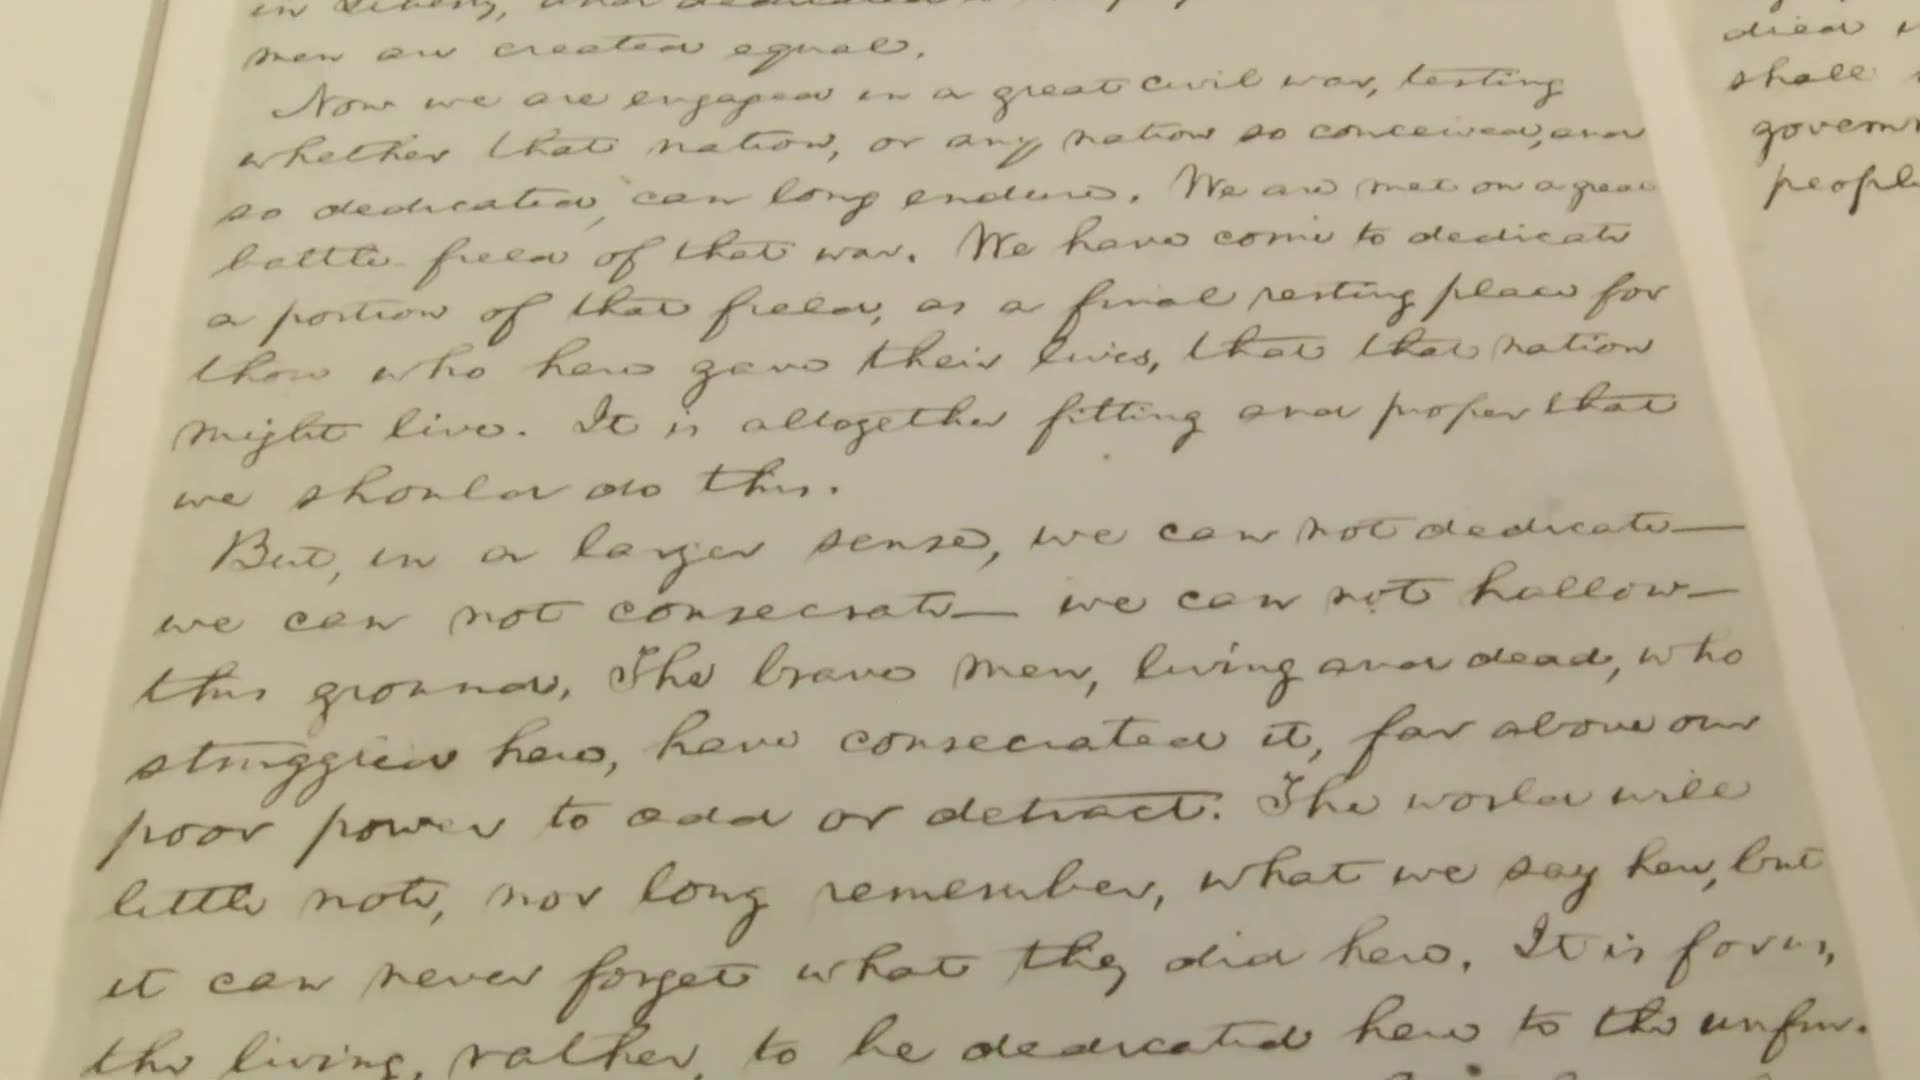 in Liberty, and dedicated
men are created equal.
Now we are engaged in a great civil war, testing
whether that nation, or any nation so conceived, and
so dedicated, can long endure. We are met on a great
battle-field of that war. We have come to dedicate
a portion of that field, as a final resting place for
those who here gave their lives, that that nation
might live. It is altogether fitting and proper that
we should do this.
But, in a larger sense, we can not dedicate—
we can not consecrate— we can not hallow—
this ground. The brave men, living and dead, who
struggled here, have consecrated it, far above our
poor power to add or detract. The world will
little note, nor long remember, what we say here, but
it can never forget what they did here. It is for us,
the living, rather, to be dedicated here to the unfin-
died
shall
govern
people